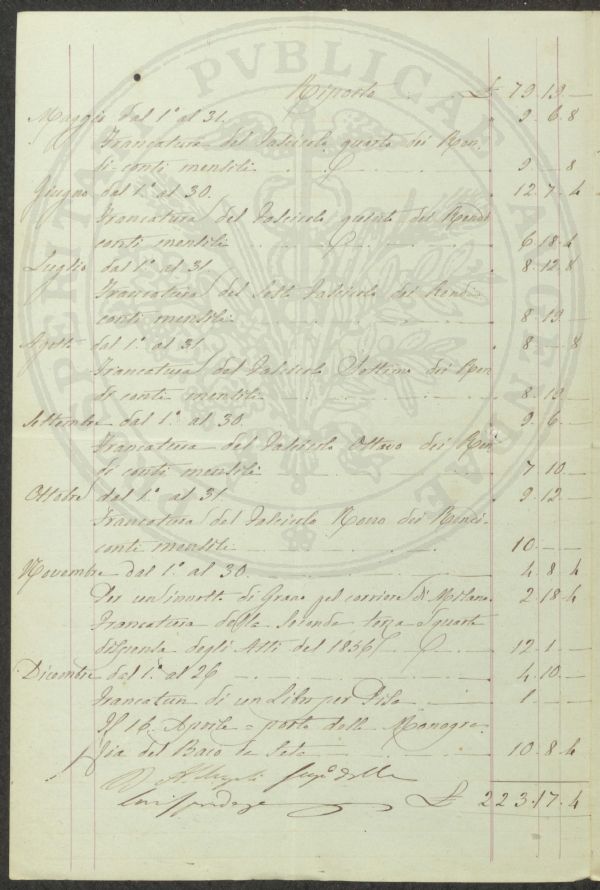 Riporto £ 79.19.—
Maggio dal 1° al 31. 9.6.8
Francatura del Fascicolo quarto dei Ren
di-conti mensili 9.—.8
Giugno dal 1° al 30. 12.7.4
Francatura del Fascicolo quinto dei Rendi
conti mensili 6.18.4
Luglio dal 1° al 31 8.12.8
Francatura del Fascicolo dei Rendi
conti mensili 8.19.—
Agosto dal 1° al 31 8.—.8
Francatura del Fascicolo Settimo dei Ren
di conti mensili 8.19.—
Settembre dal 1° al 30. 9.6.—
Francatura del Fascicolo Ottavo dei Ren
di conti mensili 7.10.—
Ottobre dal 1° al 31. 9.12.—
Francatura del Fascicolo Nono dei
conti mensili 10.—.—
Novembre dal 1° al 30. 4.8.4
Per un di pel corriere di Milano 2.18.4
Francatura della Seconda terza e quarta
dispensa degli Atti del 1856 12.1.—
Dicembre dal 1° al 26 4.10.—
Francatura di un Libro per Pisa 1.—
Il 16. Aprile = porto della Monogra
fia del Baco da Seta 10.8.4
£ 223.17.4
PROSPERITATI PVBLICAE AVGENDAE